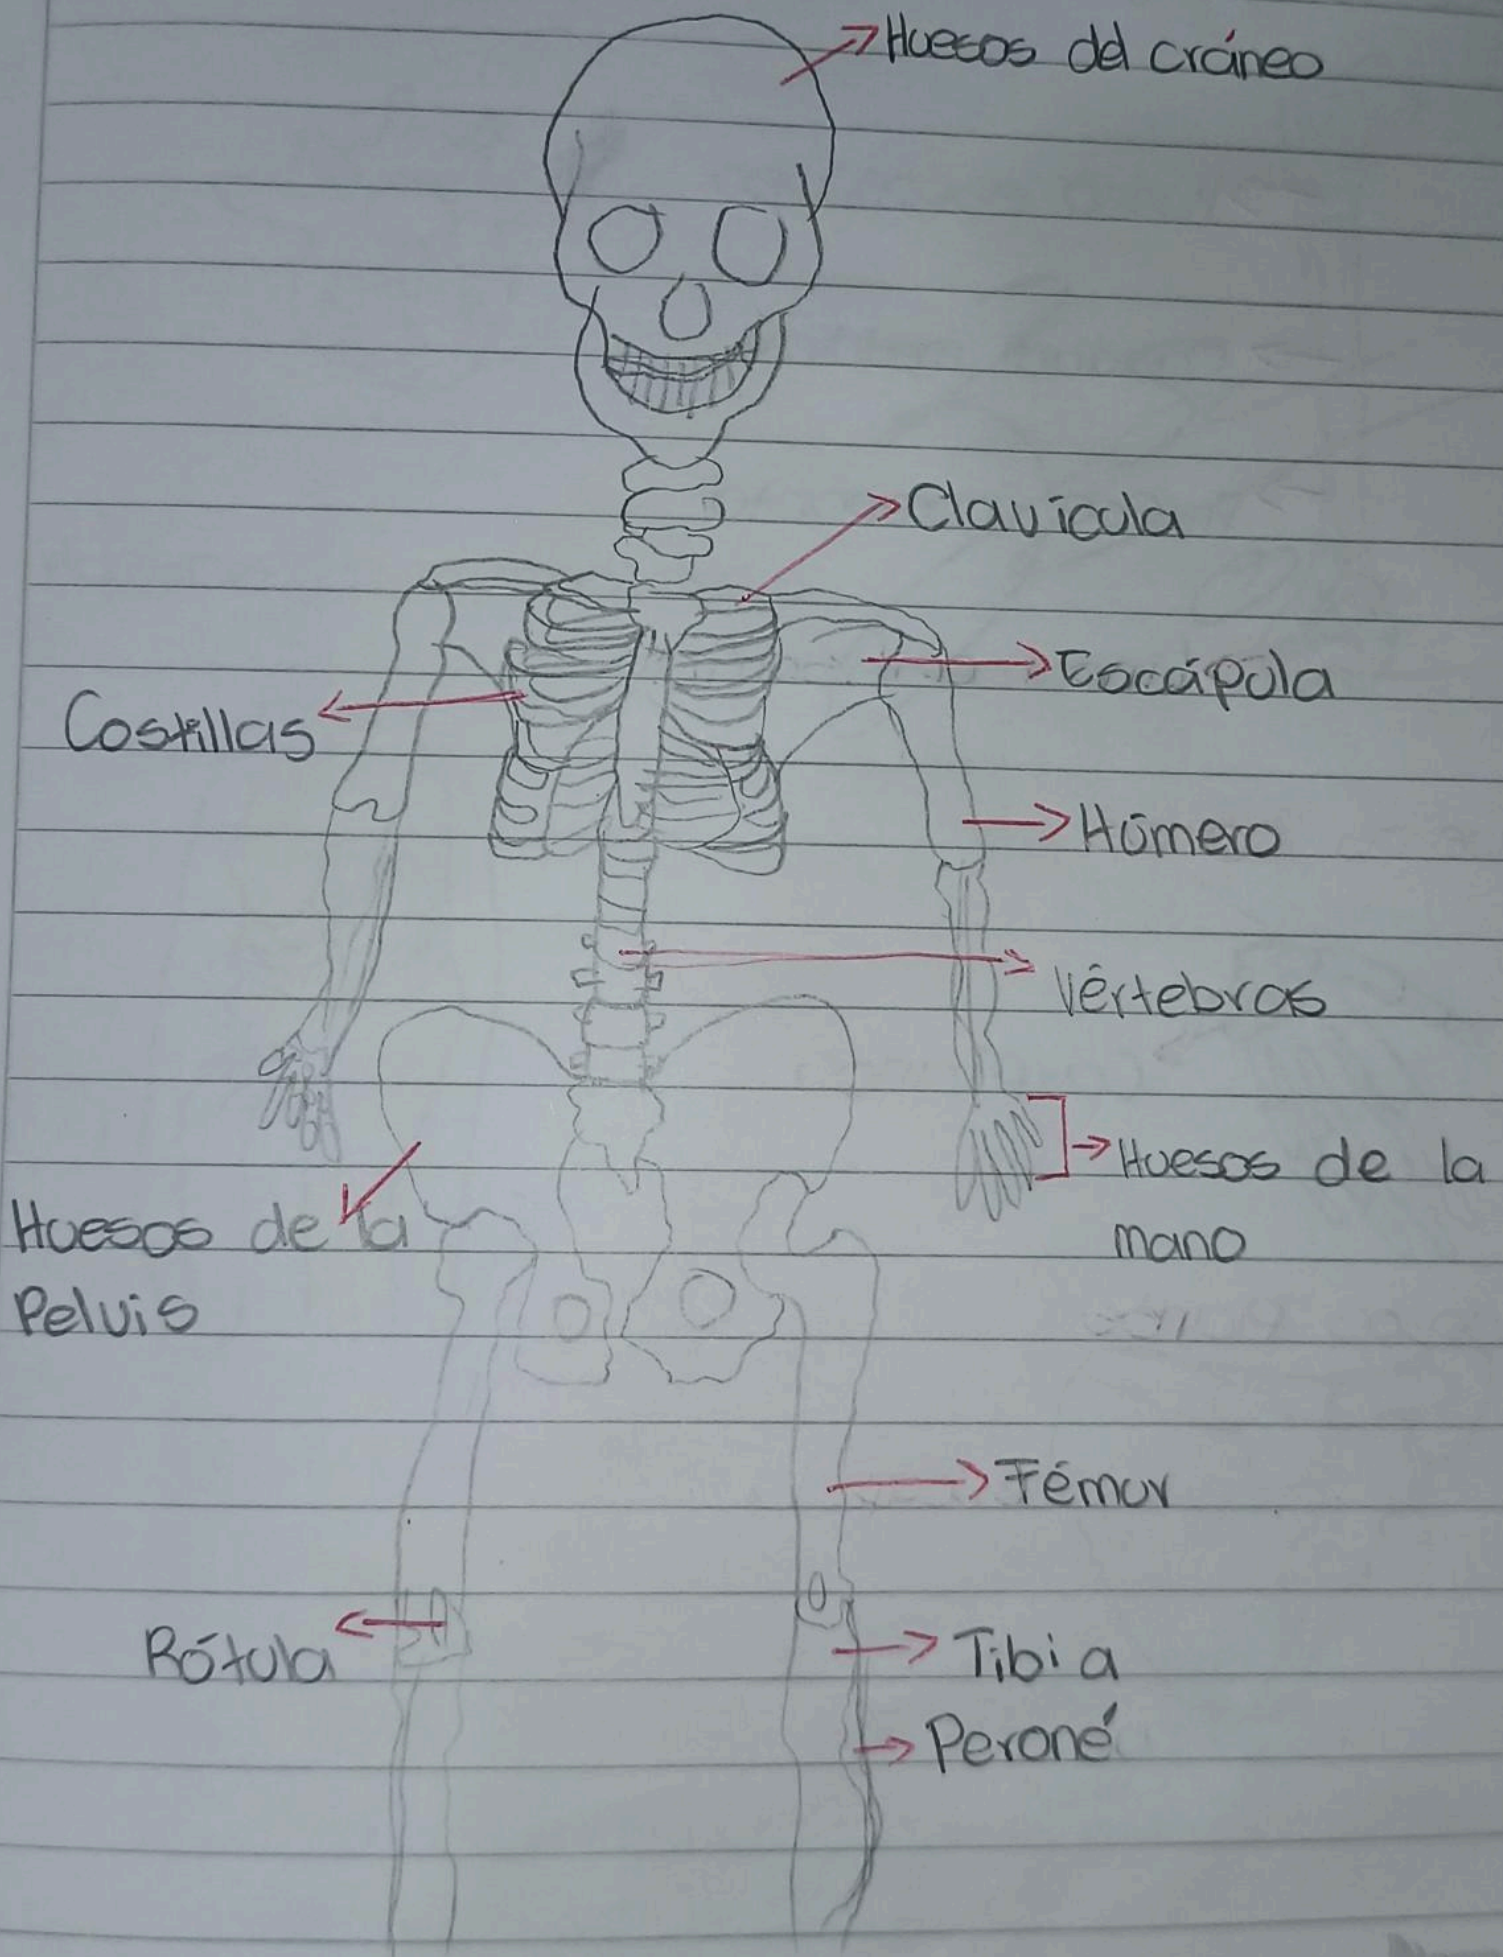 Huesos del cráneo
Clavícula
Escápula
Costillas
Húmero
Vértebras
Huesos de la
mano
Huesos de la
Pelvis
Fémur
Rótula
Tibia
Peroné